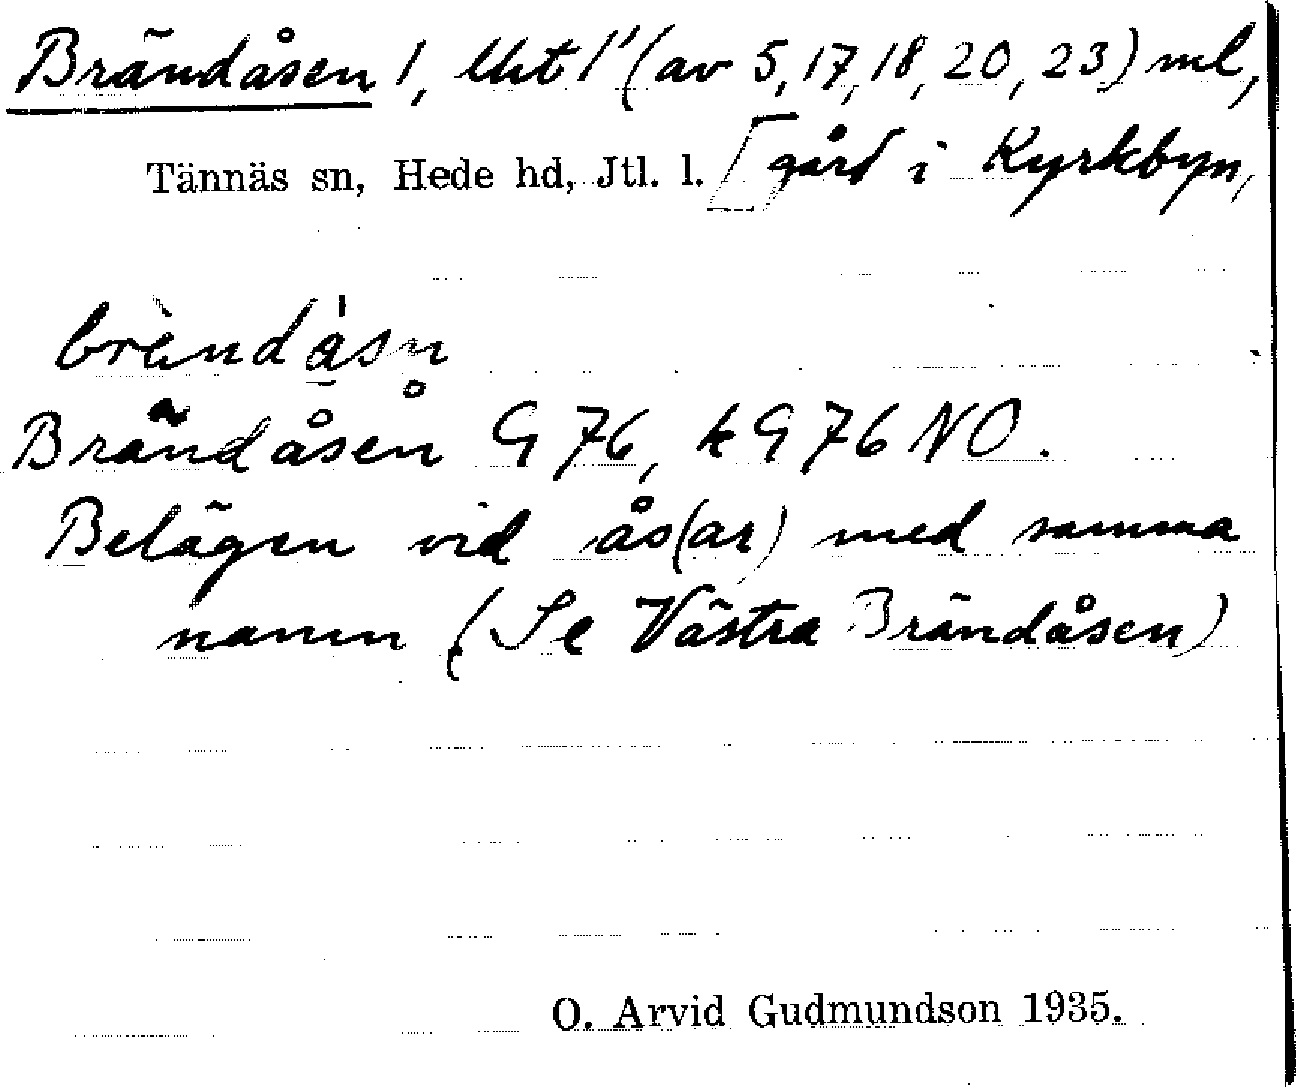 Brändåsen 1, litt 1' (av 5, 17, 18, 20, 23) ml,
Tännäs sn, Hede hd, Jtl. l. [gård i Kyrkbyn,
brèndåsn
Brändåsen G 76, k G 76 NO.
Belägen vid ås(ar) med samma
namn (Se Västra Brändåsen)
O. Arvid Gudmundson 1935.